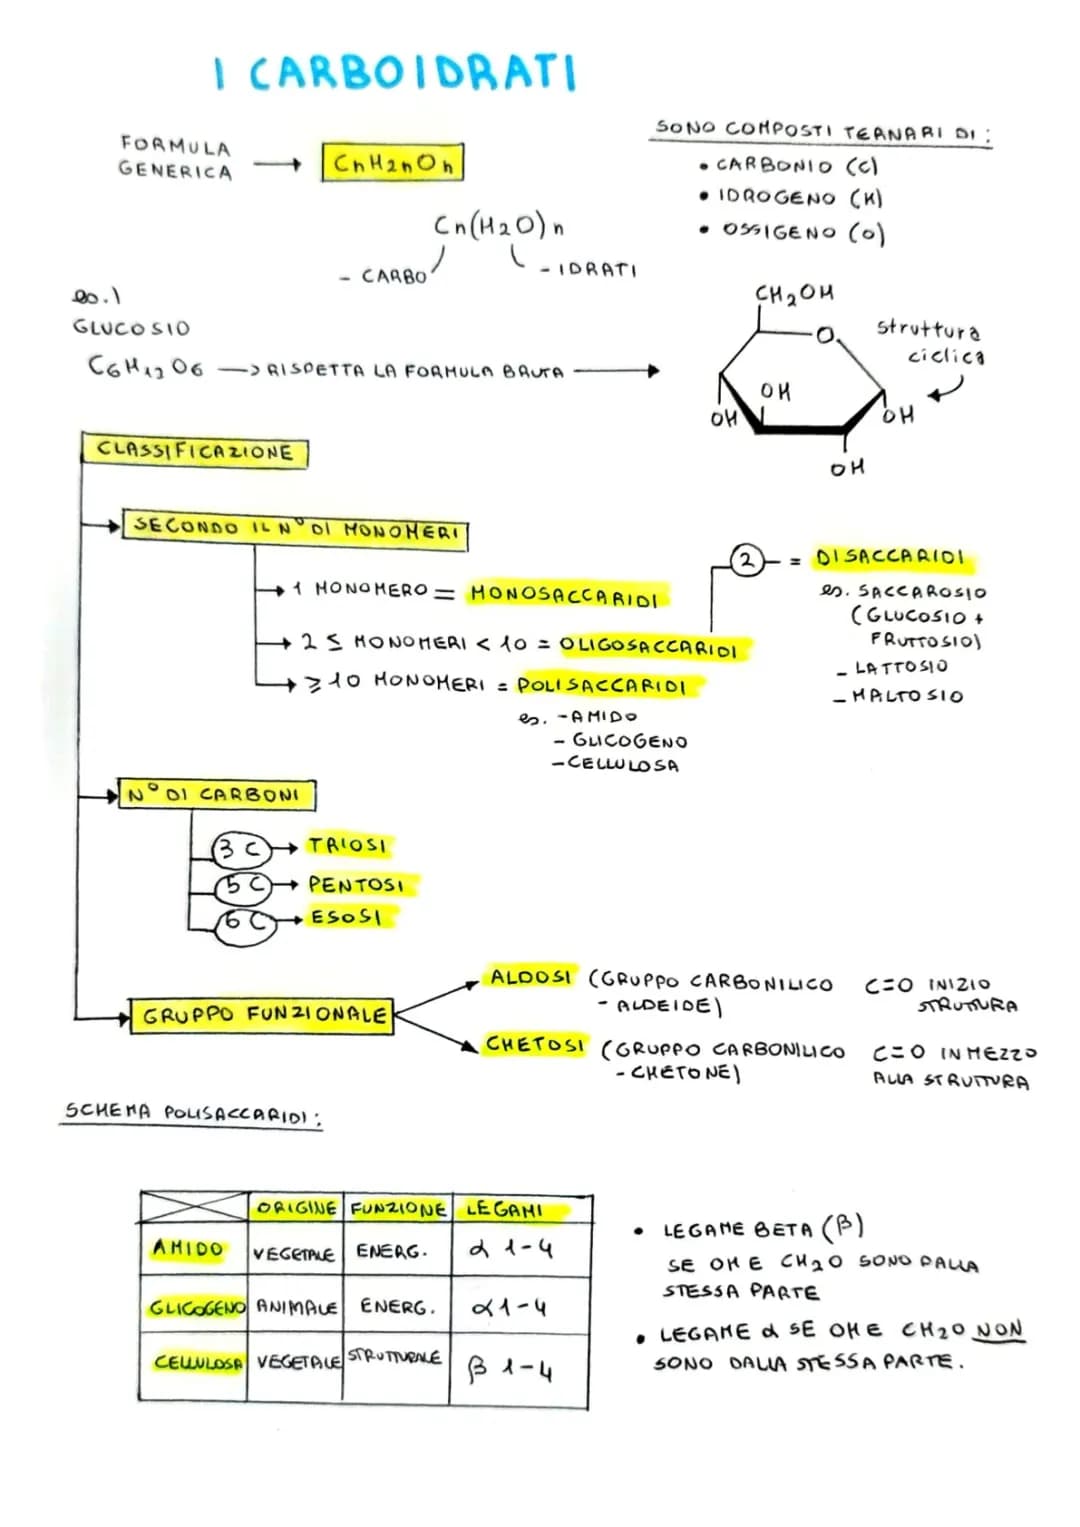 I CARBOIDRATI
FORMULA
GENERICA
CnH2nOn
SONO COMPOSTI TERNARI DI:
• CARBONIO (C)
• IDROGENO (H)
• OSSIGENO (O)
Cn(H2O)n
- CARBO
- IDRATI
es.1
GLUCOSIO
C6H12O6 → RISPETTA LA FORMULA BRUTA →
CH2OH
O
OH
OH
OH
OH
struttura
ciclica
CLASSIFICAZIONE
SECONDO IL N° DI MONOMERI
1 MONOMERO = MONOSACCARIDI
2 ≤ MONOMERI < 10 = OLIGOSACCARIDI
≥ 10 MONOMERI = POLISACCARIDI
es. - AMIDO
- GLICOGENO
- CELLULOSA
2 = DISACCARIDI
es. SACCAROSIO
(GLUCOSIO +
FRUTTOSIO)
- LATTOSIO
- MALTOSIO
N° DI CARBONI
3 C → TRIOSI
5 C → PENTOSI
6 C → ESOSI
GRUPPO FUNZIONALE
ALDOSI (GRUPPO CARBONILICO C=O INIZIO
- ALDEIDE) STRUTTURA
CHETOSI (GRUPPO CARBONILICO C=O IN MEZZO
- CHETONE) ALLA STRUTTURA
SCHEMA POLISACCARIDI:
ORIGINE FUNZIONE LEGAMI
AMIDO VEGETALE ENERG. α 1-4
GLICOGENO ANIMALE ENERG. α 1-4
CELLULOSA VEGETALE STRUTTURALE β 1-4
• LEGAME BETA (β)
SE OH E CH2O SONO DALLA
STESSA PARTE
• LEGAME α SE OH E CH2O NON
SONO DALLA STESSA PARTE.